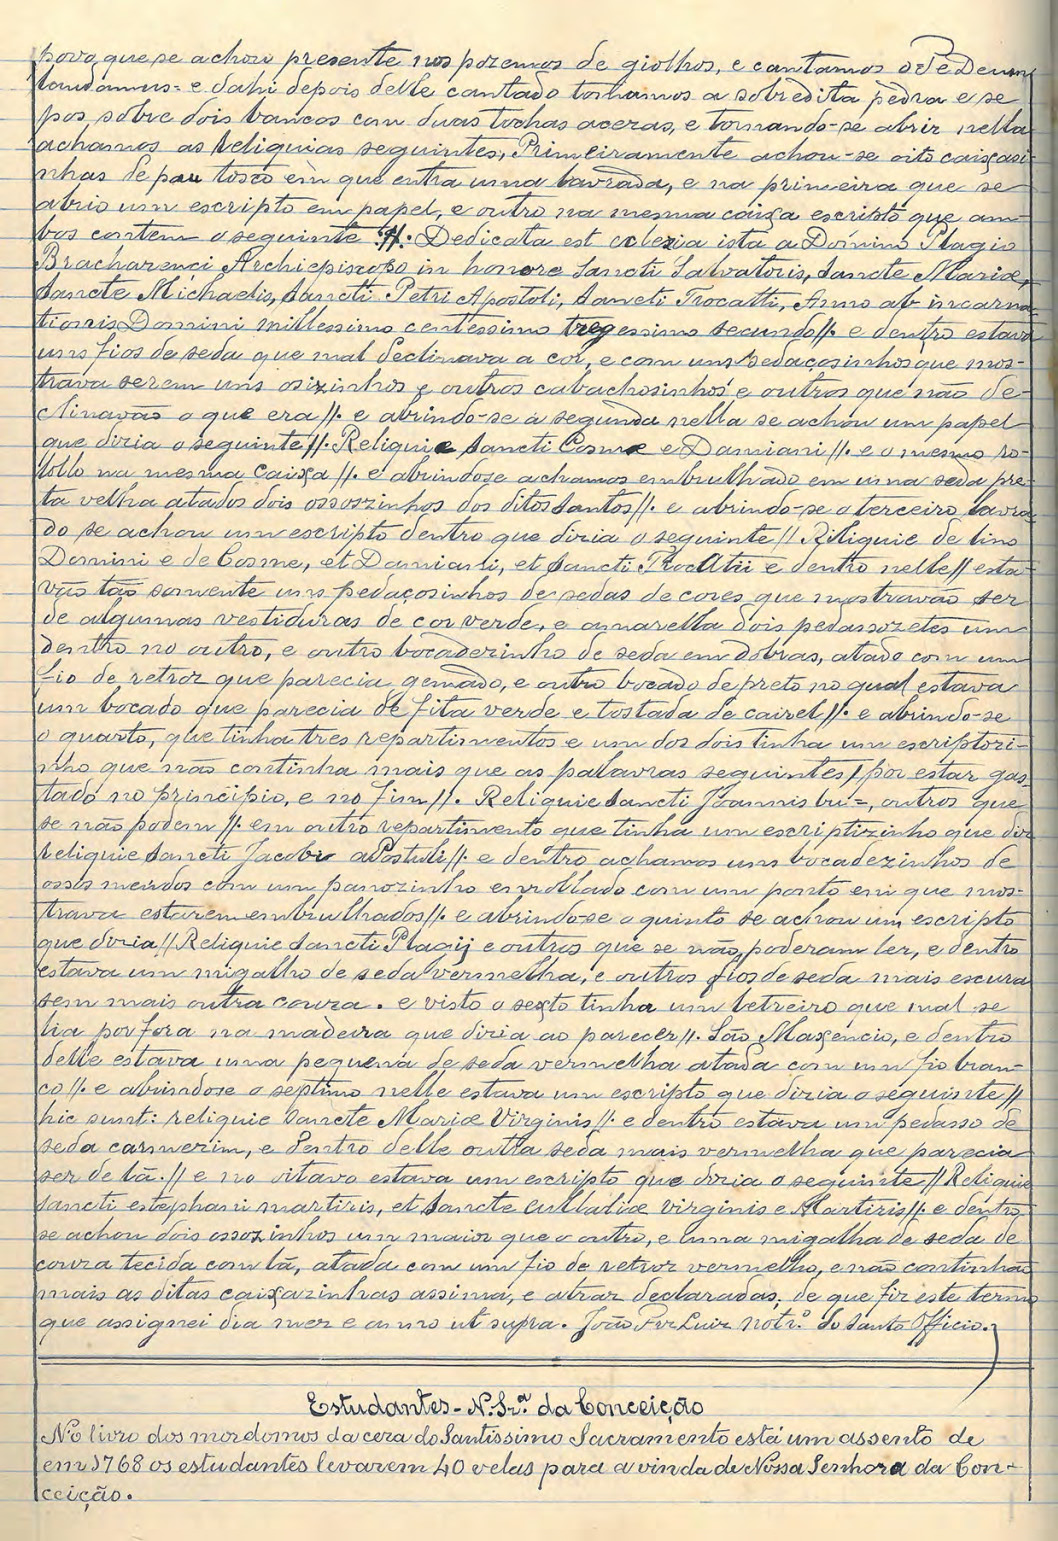 povo que se achou presente nos pozemos de giolhos, e cantamos o Te Deum
laudamus = e dahi depois delle cantado tornamos a sobredita pedra e se
pos sobre dois bancos com duas tochas aceras, e tornando-se abrir nella
achamos as reliquias seguintes, Primeiramente achou-se oito caixasi-
nhas de pau tosco em que entra uma lavrada, e na primeira que se
abrio um escripto em papel, e outro na mesma caixa escripto que am-
bos contem o seguinte //. Dedicata est eclezia ista a Domino Plagio
Bracharenci Archiepiscopo in honore Sancti Salvatoris, Sancte Mariæ,
Sancte Michaelis, Sancti Petri Apostoli, Sancti Trocatti, Anno ab incarna-
tionis Domini millessimo centessimo tregessimo secundo //. e dentro estava
uns fios de seda que mal declinava a cor, e com uns sedaçosinhos que mos-
trava serem uns osizinhos e outros cabachosinhos e outros que não de-
clinavão o que era //. e abrindo-se a segunda nella se achou um papel
que dizia o seguinte //. Reliquie Sancti Cosme e Damiani //. e o mesmo ro-
tollo na mesma caixa //. e abrindose achamos embrulhado em uma seda pre-
ta velha atados dois ossoszinhos dos ditos Santos //. e abrindo-se o terceiro lavra-
do se achou um escripto dentro que dizia o seguinte // Riliquie de lino
Domini e de Cosme, et Damianli, et Sancti Procatii e dentro nelle // esta-
vão tão somente uns pedaçosinhos de sedas de cores que mostravão ser
de algumas vestiduras de cor verde, e amarella dois pedassozetes um
dentro no outro, e outro bocaderinho de seda em dobras, atado com um
fio de retroz que parecia gemado, e outro bocado de preto no qual estava
um bocado que parecia de fita verde e tostada de cairel //. e abrindo-se
o quarto, que tinha tres repartimentos e um dos dois tinha um escriptori-
nho que não continha mais que as palavras seguintes / por estar gas-
tado no principio, e no fim //. Reliquie Sancti Joannis bu =, outros que
se não podem //. em outro repartimento que tinha um escriptizinho que diz
reliquie Sancti Jacobi apostuli //. e dentro achamos uns bocadezinhos de
ossos meudos com um panozinho envollado com um ponto em que mos-
trava estarem embrulhados //. e abrindo-se o quinto se achou um escripto
que dizia // Reliquie Sancti Plagij e outros que se não poderam ler, e dentro
estava um migalho de seda vermelha, e outros fios de seda mais escura
sem mais outra couza. e visto o sexto tinha um letreiro que mal se
lia por fora na madeira que dizia ao parecer //. São Maxencio, e dentro
delle estava uma pequena de seda vermelha atada com um fio bran-
co //. e abrindose o septimo nelle estava um escripto que dizia o seguinte //
hic sunt: reliquie Sancte Mariæ Virginis //. e dentro estava um pedasso de
seda carmezim, e dentro delle outra seda mais vermelha que parecia
ser de lã. // e no oitavo estava um escripto que dizia o seguinte // Reliquie
Sancti estephani martiris, et Sancte Eullaliæ virginis e Martiris //. e dentro
se achou dois ossozinhos um maior que o outro, e uma migalha de seda de
couza tecida com lã, atada com um fio de retroz vermelho, e não continhão
mais as ditas caixazinhas assima, e atraz declaradas, de que fiz este termo
que assignei dia mez e anno ut supra. João Frz Luiz notr.º do Santo Officio.
Estudantes - N. Sr.ª da Conceição
No livro dos mordomos da cera do Santissimo Sacramento está um assento de
em 1768 os estudantes levarem 40 velas para a vinda de Nossa Senhora da Con-
ceição.